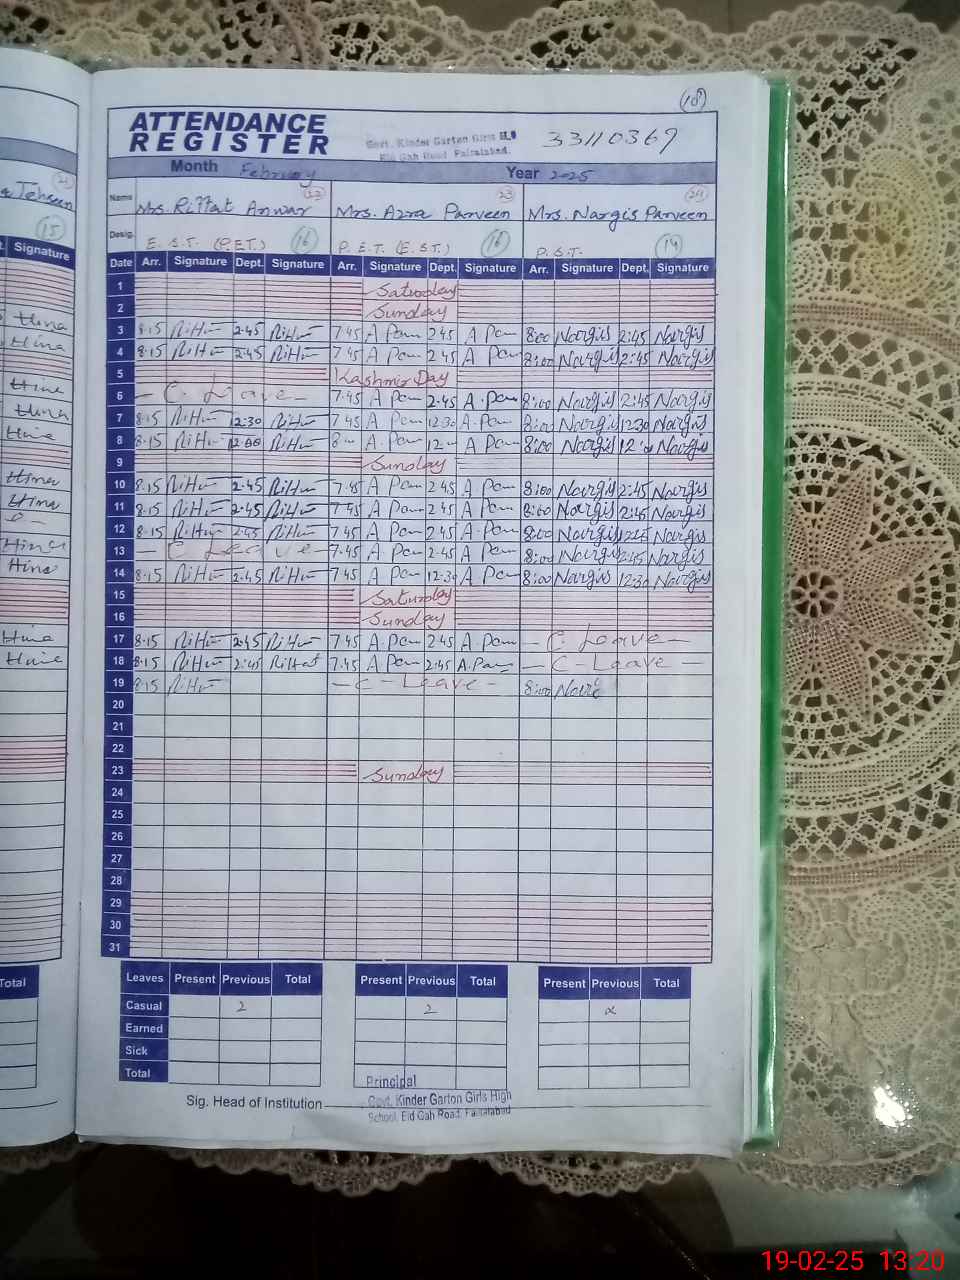 (18)
ATTENDANCE
REGISTER
Govt. Kinder Garton Girls H.S
Eid Gah Road, Faisalabad.
33110369
Month February Year 2025
Name Mrs. Riffat Anwar (22) Mrs. Azra Parveen 23 Mrs. Nargis Parveen (24)
Desig. E.S.T. (P.E.T.) 16 P.E.T. (E.S.T.) 16 P.S.T. 14
Date Arr. Signature Dept. Signature Arr. Signature Dept. Signature Arr. Signature Dept. Signature
1 Saturday
2 Sunday
3 8.15 2.45 7.45 A Pam 2 45 A Pam 8:00 Nargis 2:45 Nargis
4 8.15 2.45 7 45 A Pam 2 45 A Pam 8:00 Nargis 2:45 Nargis
5 Kashmir Day
6 - C Leave - 7.45 A Pam 2.45 A.Pam 8:00 Nargis 2:45 Nargis
7 8.15 12:30 7 45 A Pam 12 30 A.Pam 8:00 Nargis 12:30 Nargis
8 8.15 12:00 8 00 A.Pam 12 00 A Pam 8:00 Nargis 12:00 Nargis
9 Sunday
10 8.15 2.45 7.45 A Pam 2 45 A Pam 8:00 Nargis 2:45 Nargis
11 8.15 2.45 7.45 A Pam 2.45 A Pam 8:00 Nargis 2:45 Nargis
12 8.15 2.45 7.45 A Pam 2.45 A.Pam 8:00 Nargis 2:45 Nargis
13 - C Leave - 7.45 A.Pam 2.45 A Pam 8:00 Nargis 2:45 Nargis
14 8.15 2.45 7 45 A Pam 12.30 A.Pam 8:00 Nargis 12:30 Nargis
15 Saturday
16 Sunday
17 8.15 2.45 7.45 A.Pam 2.45 A.Pam - C. Leave -
18 8.15 2:45 Riffat 7.45 A Pam 2:45 A.Pam - C - Leave -
19 8.15 - C - Leave - 8:00
20
21
22
23 Sunday
24
25
26
27
28
29
30
31
Leaves Present Previous Total Present Previous Total Present Previous Total
Casual 2 2
Earned
Sick
Total
Principal
Sig. Head of Institution Govt. Kinder Garton Girls High
School, Eid Gah Road, Faisalabad
Tehseen
15
Signature
Hina
Hina
Hina
Hina
Hina
Hina
Hina
Hina
Hina
Hina
Hina
Total
19-02-25 13:20